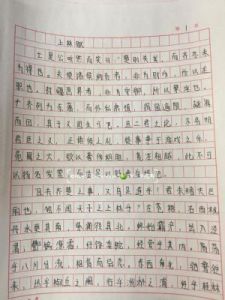 1
上林赋
亡是公听然而笑曰:楚则失矣,而齐亦未
为得也。夫使诸侯纳贡者,非为财币,所以述
职也;封疆画界者,非为守御,所以禁淫也。
今齐列为东藩,而外私肃慎,捐国逾限,越海
而田,其于义固未可也。且二君之论,不务明
君臣之义,正诸侯之礼,徒事争于游戏之乐,
苑囿之大,欲以奢侈相胜,荒淫相越,此不可
以扬名发誉,
且夫齐楚之事,又乌足道乎!君未睹夫巨
丽也,独不闻天子之上林乎?左苍梧,右西极,
丹水更其南,紫渊径其北。终始灞浐,出入泾
渭;酆镐潦潏,纡馀委蛇,经营乎其内。荡荡
乎八川分流,相背而异态。东西南北,驰骛往
来,出乎椒丘之阙,行乎洲淤之浦,